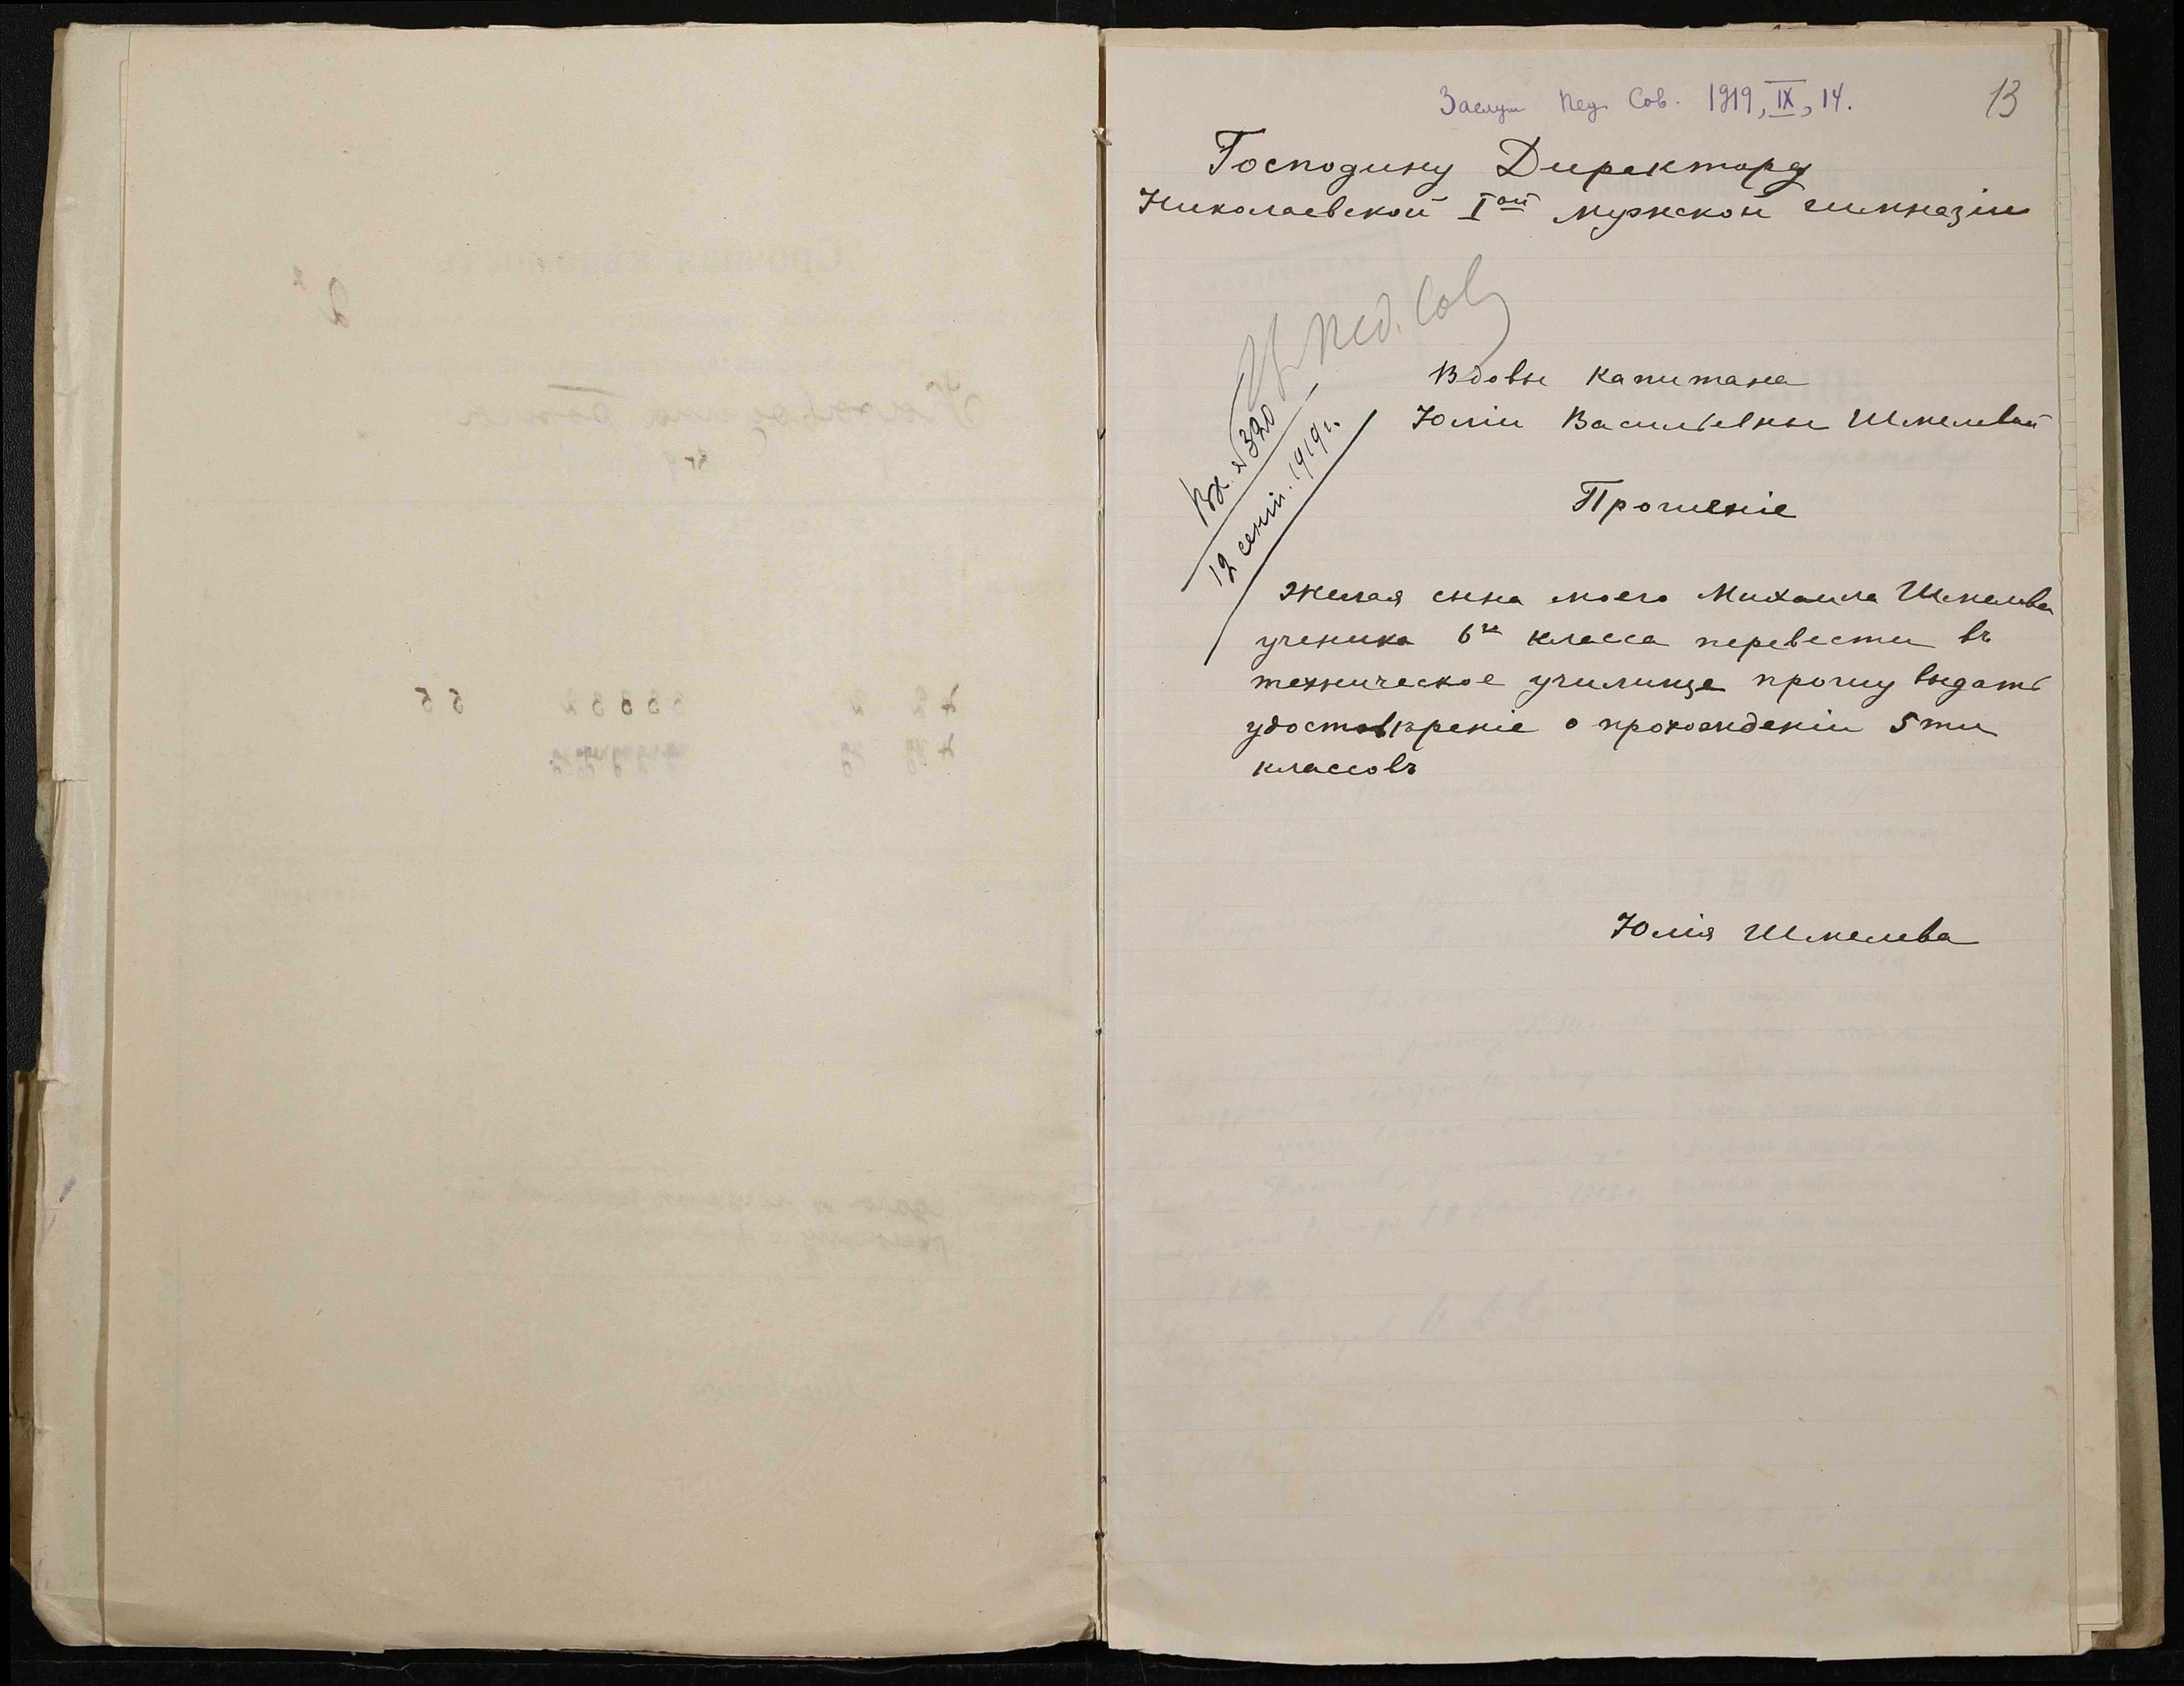 Заслуш Пед. Сов. 1919, IX, 14.
13
Господину Директору
Николаевской Iой мужской гимназіи
Пед. Сов
Вх. № 320
12 сент. 1919 г.
Вдовы капитана
Юліи Васильевны Шмелевой
Прошеніе
Желая сына моего Михаила Шмелева
ученика 6го класса перевести въ
техническое училище прошу выдать
удостовѣреніе о прохожденіи 5ти
классовъ
Юлія Шмелева